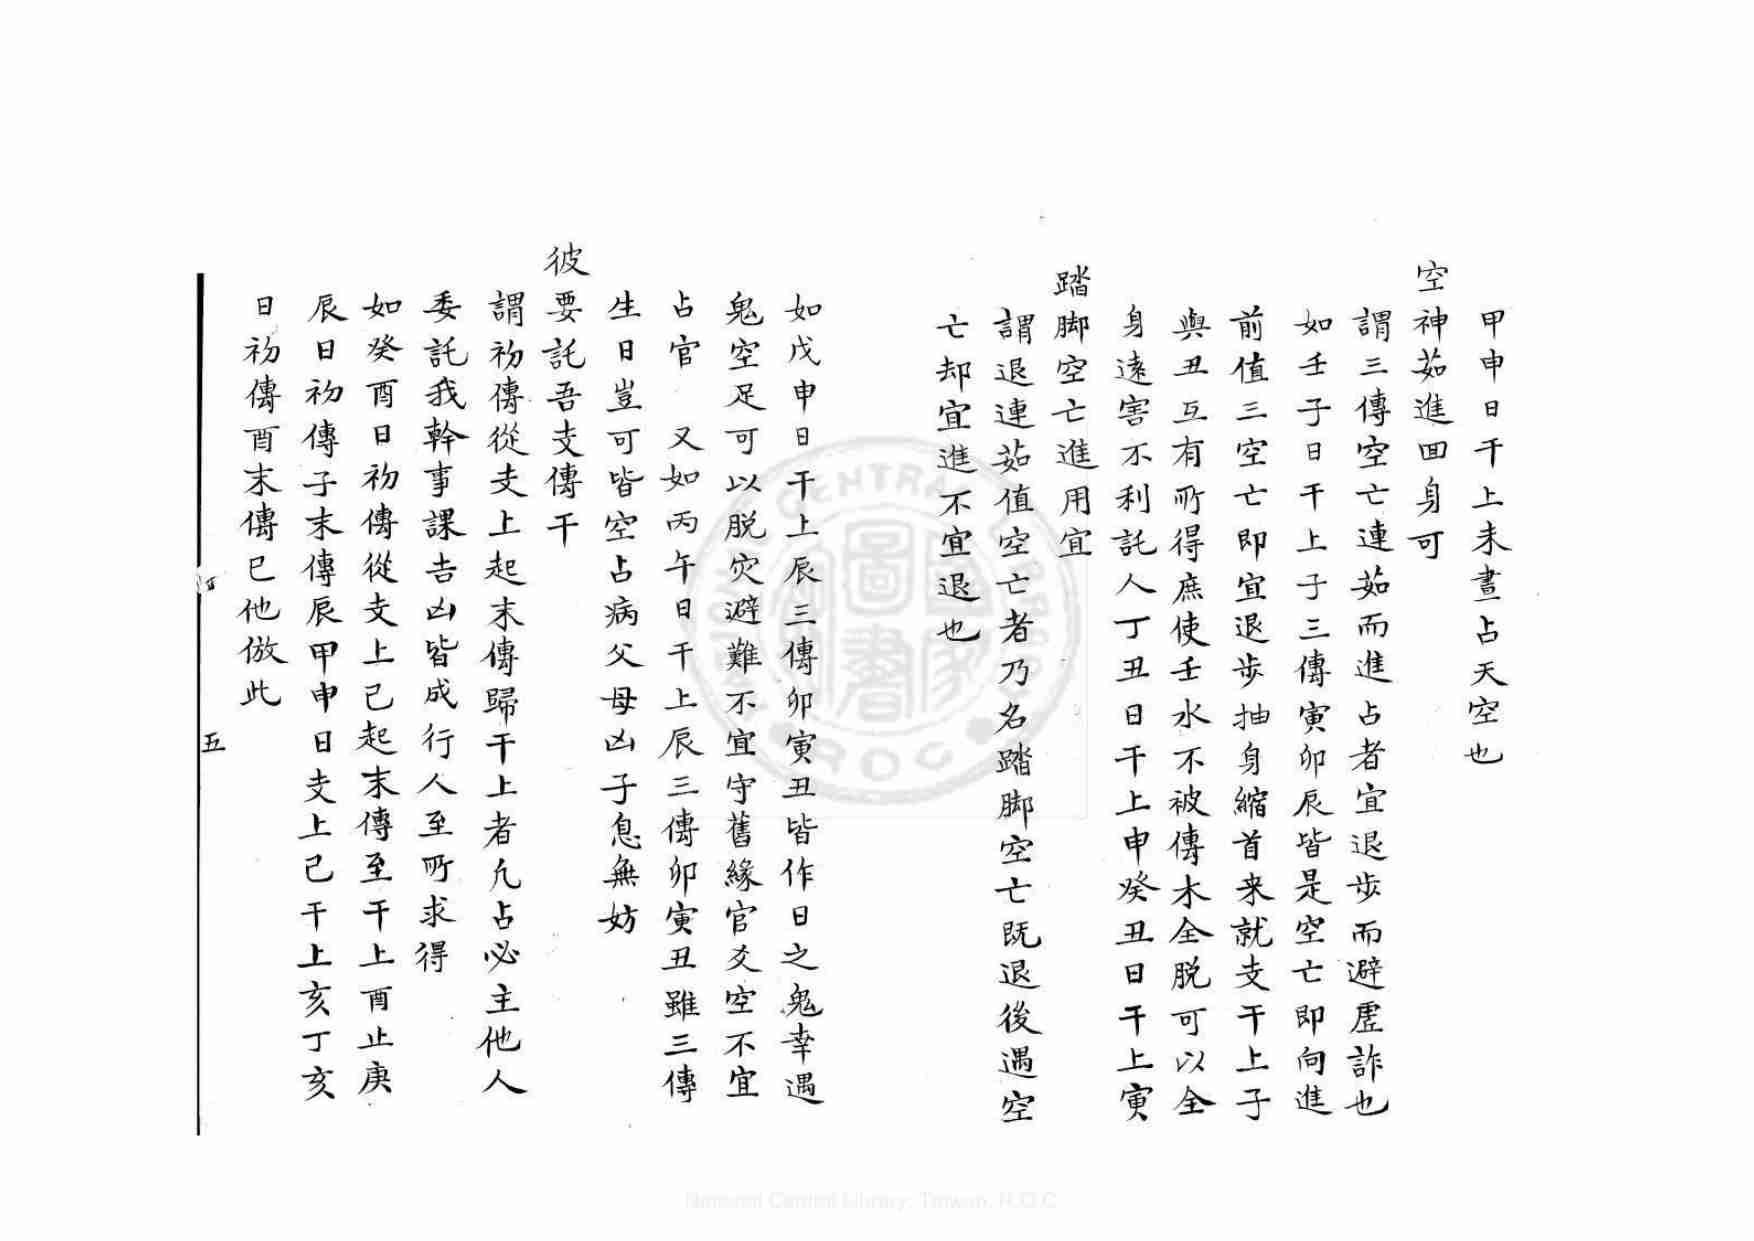 甲申日干上未晝占天空也
空神茹進回身可
謂三傳空亡連茹而進占者宜退步而避虛詐也
如壬子日干上子三傳寅卯辰皆是空亡即向進
前值三空亡即宜退步抽身縮首来就支干上子
與丑互有所得庶使壬水不被傳木全脱可以全
身遠害不利託人丁丑日干上申癸丑日干上寅
踏脚空亡進用宜
謂退連茹值空亡者乃名踏脚空亡既退後遇空
亡却宜進不宜退也
如戊申日干上辰三傳卯寅丑皆作日之鬼幸遇
鬼空足可以脱灾避難不宜守舊緣官爻空不宜
占官 又如丙午日干上辰三傳卯寅丑雖三傳
生日豈可皆空占病父母凶子息無妨
彼要託吾支傳干
謂初傳從支上起末傳歸干上者凡占必主他人
委託我幹事課吉凶皆成行人至所求得
如癸酉日初傳從支上己起末傳至干上酉止庚
辰日初傳子末傳辰甲申日支上巳干上亥丁亥
日初傳酉末傳巳他倣此
五
CENTRAL LIBRARY
ROC
National Central Library, Taiwan, R.O.C